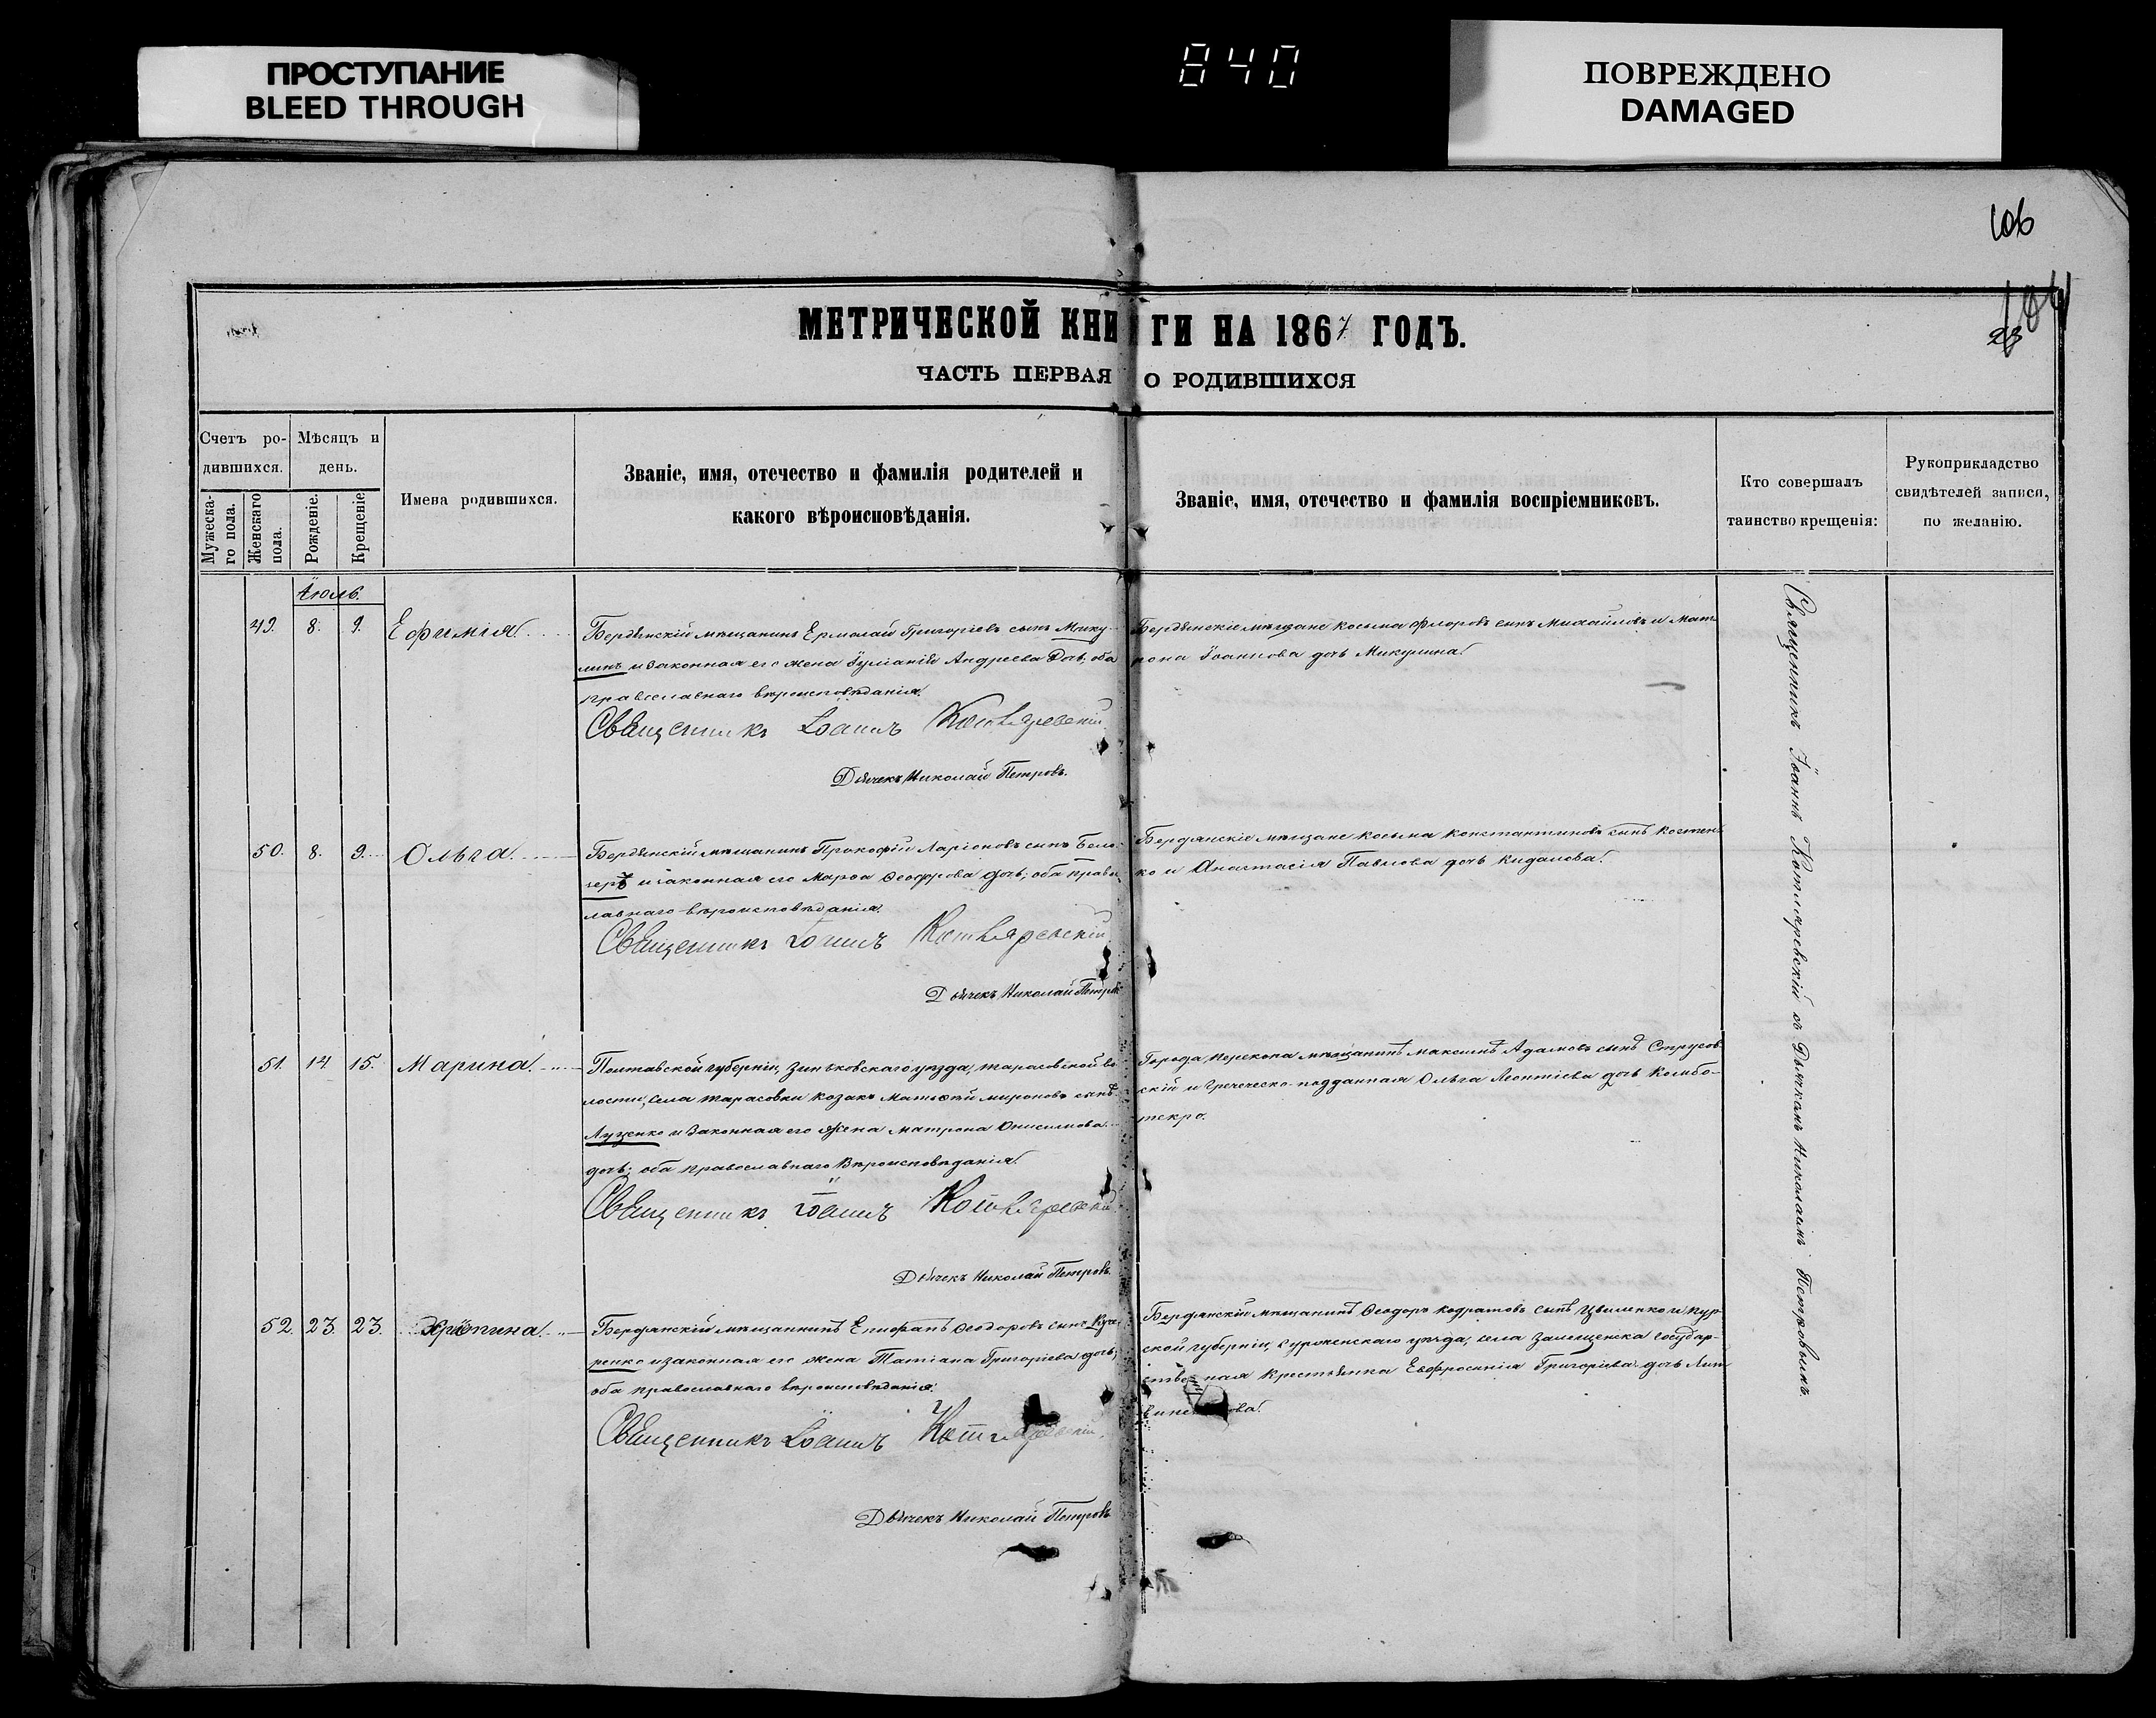 ПРОСТУПАНИЕ
BLEED THROUGH
840
ПОВРЕЖДЕНО
DAMAGED
106
МЕТРИЧЕСКОЙ КНИГИ НА 1867 ГОДЪ.
23
ЧАСТЬ ПЕРВАЯ О РОДИВШИХСЯ
Счетъ ро-
дившихся.
Мужеска-
го пола.
Женскаго
пола.
Мѣсяцъ и
день.
Рожденіе.
Крещеніе
Имена родившихся.
Званіе, имя, отечество и фамилія родителей и
какого вѣроисповѣданія.
Званіе, имя, отечество и фамилія воспріемниковъ.
Кто совершалъ
таинство крещенія:
Рукоприкладство
свидѣтелей записи,
по желанію.
Іюль.
49. 8. 9. Ефимія.
Бердянскій мѣщанинъ Ермолай Григоріевъ сынъ Мику-
линъ и законная его жена Іуліанія Андреева дочь; оба
православнаго вѣроисповѣданія.
Священникъ Іоаннъ Котляревскій
Дьячекъ Николай Петровъ.
Бердянскіе мѣщане Косьма Флоровъ сынъ Михайловъ и Мат-
рона Іоаннова дочь Микулина.
50. 8. 9. Ольга.
Бердянскій мѣщанинъ Прокофій Ларіоновъ сынъ
и законная его Марѳа Ѳеодорова дочь; оба право-
лавнаго вѣроисповѣданія.
Священникъ Іоаннъ Котляревскій
Дьячекъ Николай Петровъ
Бердянскіе мѣщане Косьма Константиновъ сынъ Костен-
ко и Анастасія Павлова дочь
51. 14 15. Марина.
Полтавской губерніи, Зиньковскаго уѣзда, Тарасовской во-
лости, села Тарасовки козакъ Матѳей Мироновъ сынъ
Луценко и законная его жена Матрона Онисимова
дочь; оба православнаго вѣроисповѣданія.
Священникъ Іоаннъ Котляревскій
Дьячекъ Николай Петровъ.
Города Перекопа мѣщанинъ Максимъ Адамовъ сынъ Струсов-
скій и Греческо-подданная Ольга Леонтіева дочь Комбо-
текро.
52. 23. 23. Хріспина.
Бердянскій мѣщанинъ Епифанъ Ѳеодоровъ сынъ Куче-
ренко и законная его жена Татіана Григоріева дочь,
оба православнаго вѣроисповѣданія.
Священникъ Іоаннъ Котляревскій.
Дьячекъ Николай Петровъ
Бердянскій мѣщанинъ Ѳеодоръ Кодратовъ сынъ Цвиленко и Кур-
ской губерніи, Суроженскаго уѣзда, села государ-
ственная крестьянка Евфросинія Григоріева дочь Лит-
Священникъ Іоаннъ Котляревскій съ Дьячкомъ Николаемъ Петровымъ.